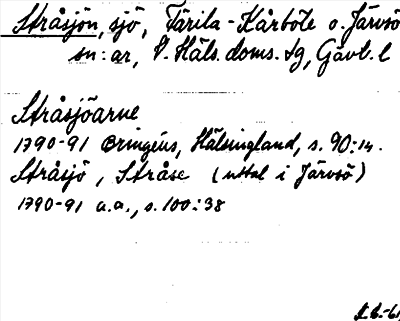 Stråsjön, sjö, Färila-Kårböle o. Järvsö
sn:ar, V. Häls. doms. sg, Gävl. l
Stråsjöarne
1790-91 Bringéus, Hälsingland, s. 90:14.
Stråsjö, Stråse (uttal i Järvsö)
1790-91 a.a., s. 100:38